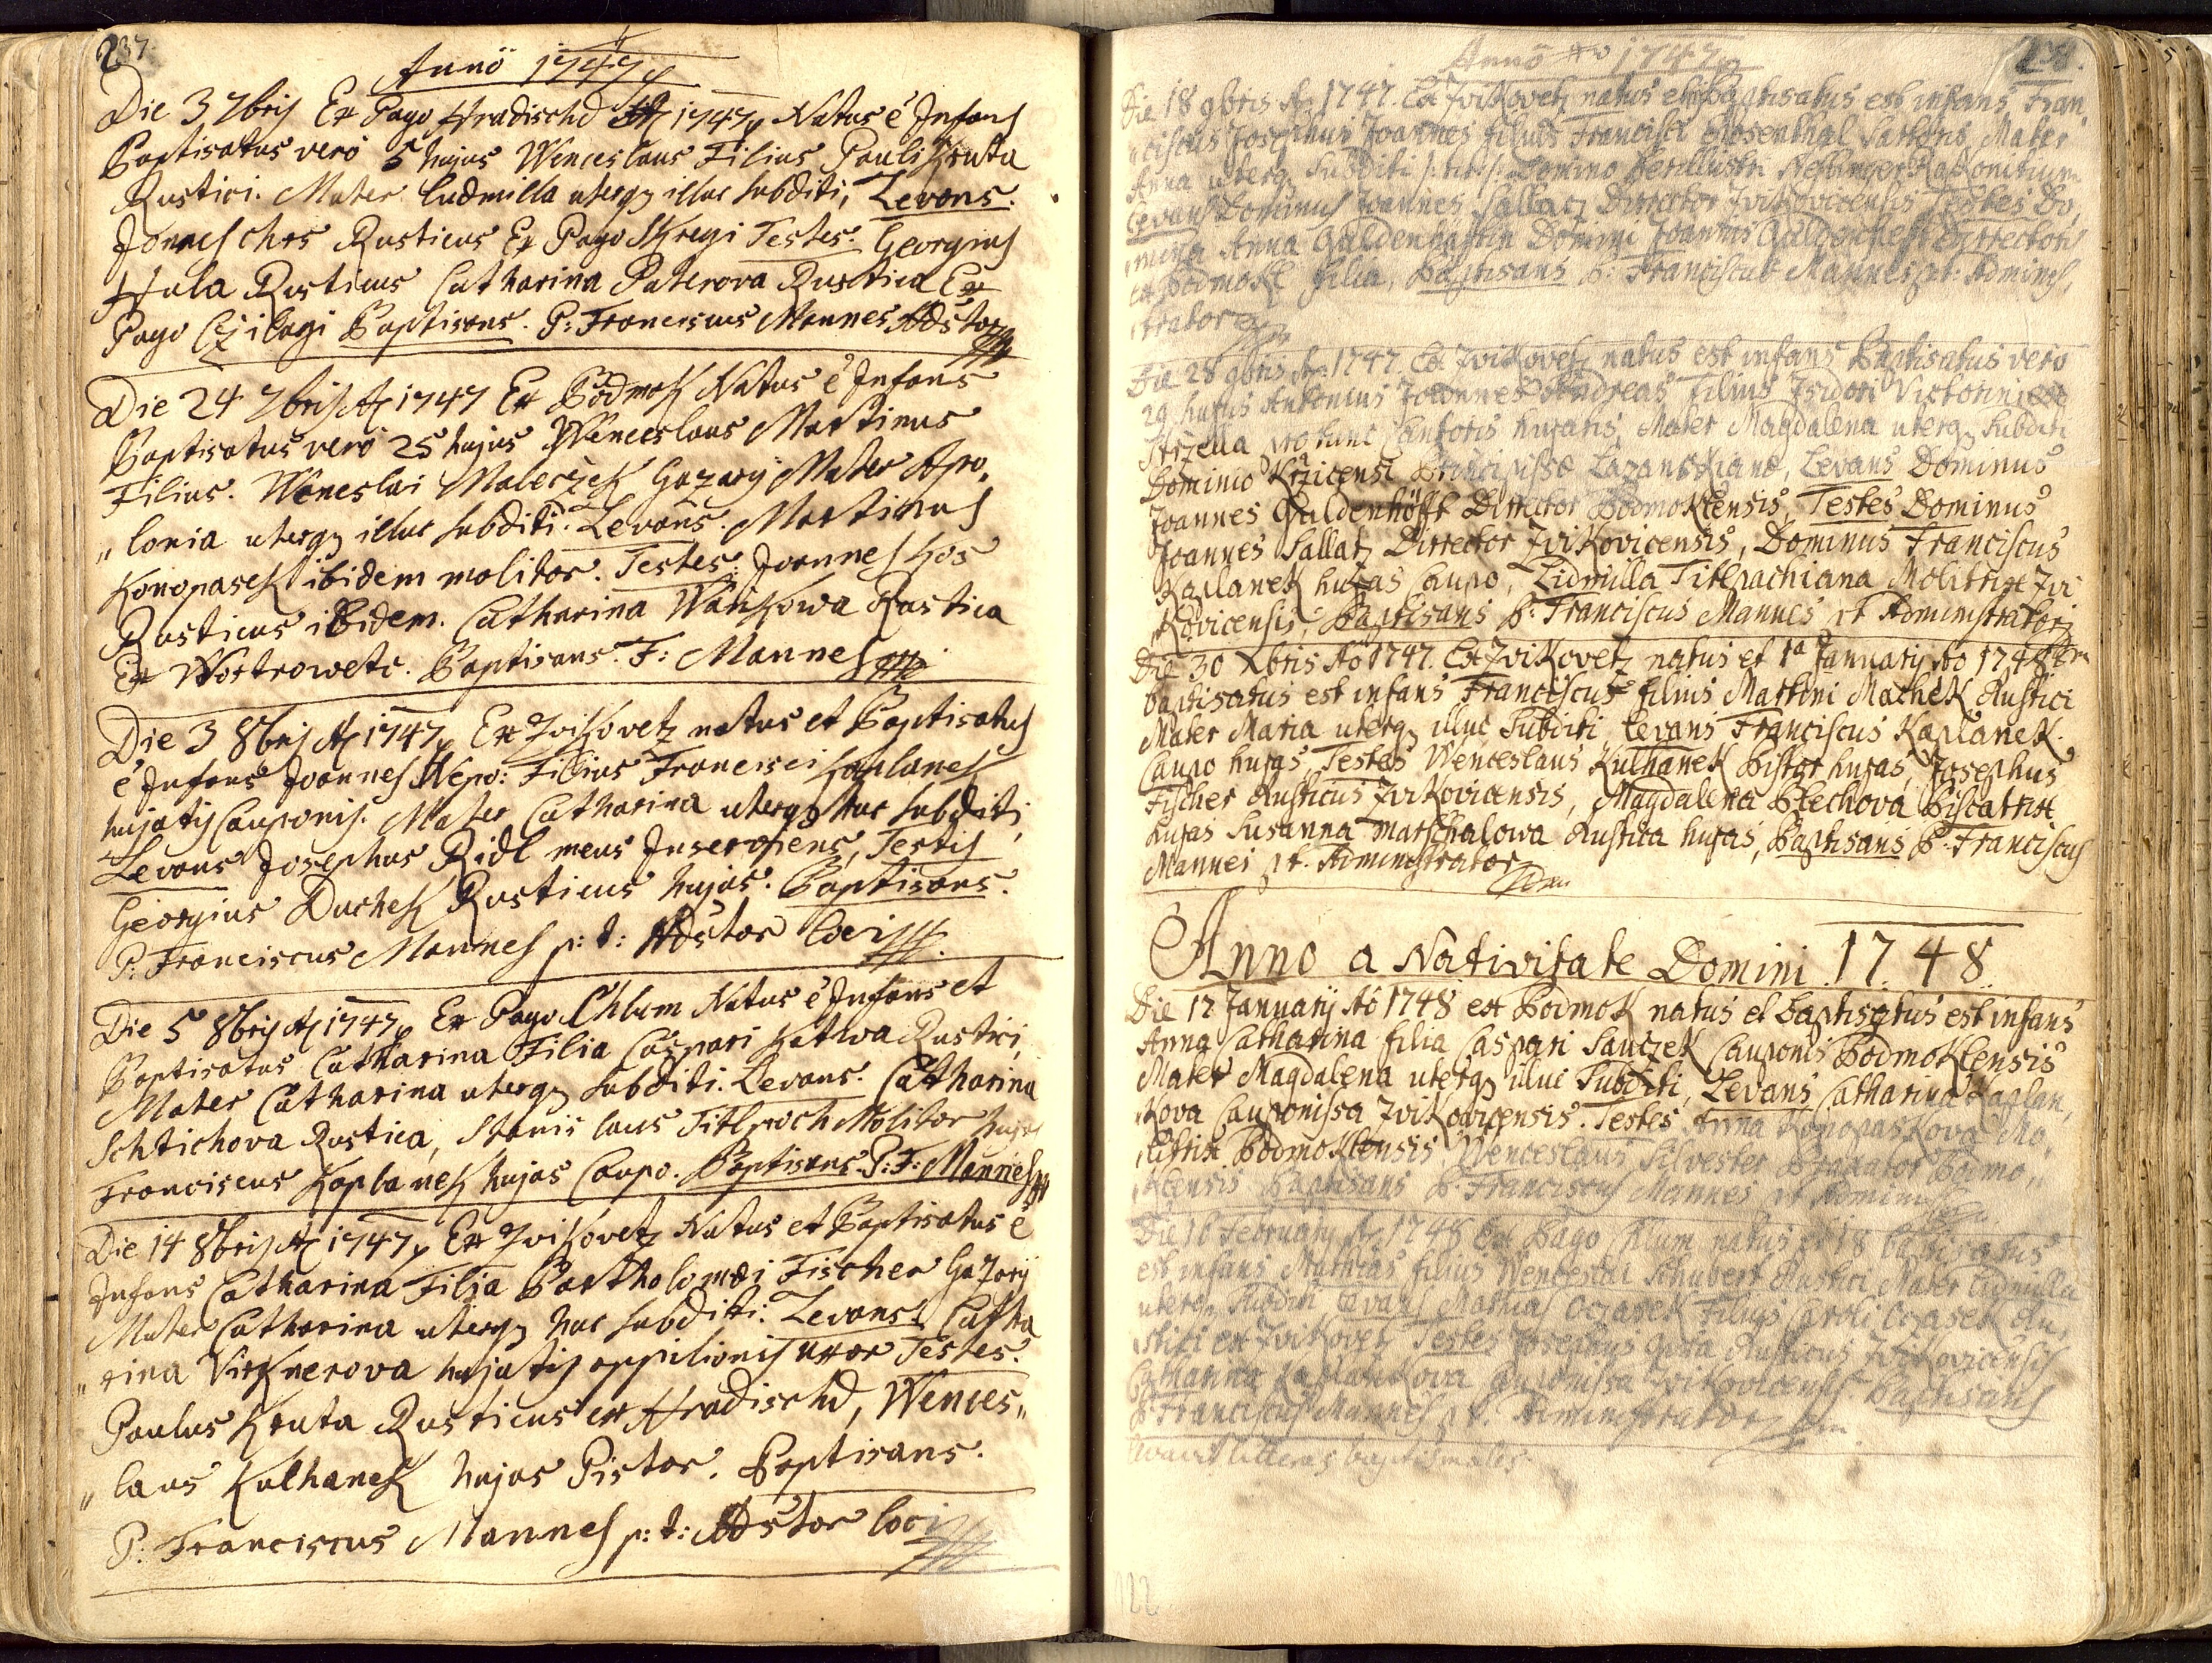 237
Anno 1747
Die 3 7bris Ex Pago Hradischd Ao 1747 Natus e Infans
Baptisatus vero 5 hujus Wenceslaus Filius Pauli Kruta
Rustici. Mater Ludmilla uterq illuc subditi, Levans.
Joannes Rusticus Ex Pago Skregi Testes. Georgius
Hula Rusticus Catharina Paterova Rustica Ex
Pago Czilagi Baptisans. P: Franciscus Mannes Adstor
Die 24 7bris Ao 1747 Ex Podmok Natus e Infans
Baptisatus vero 25 hujus Wenceslaus Martinus
Filius. Wenceslai Maleczek Gazarÿ Mater Apo,
„lonia uterq illuc subditi. Levans. Martinus
Konopasek ibidem molitor. Testes: Joannes
Rusticus ibidem. Catharina Wankowa Rustica
Ex Wostrowetc. Baptisans. F: Mannes
Die 3 8bris Ao 1747 Ex Zvikovetz natus et Baptisatus
e Infans Joannes Nepo: Filius Francisci Kaplanek
hujatis Cauponis. Mater Catharina uterq huc subditi,
Levans Josephus Ridl meus Inserviens, Testis
Georgius Duchek Rusticus hujas. Baptisans.
P: Franciscus Mannes p: t: Adstor loci
Die 5 8bris Ao 1747 Ex Pago Chlum Natus e Infans et
Baptisatus Catharina Filia Caspari Rustici,
Mater Catharina uterq subditi. Levans. Catharina
Schtichova Rustica, Stanislaus Titlpoch Molitor hujas
Franciscus Kaplanek hujas Caupo. Baptisans. P: F: Mannes
Die 14 8bris Ao 1747 Ex Zvikovetz Natus et Baptisatus e
Infans Catharina Filia Bartholomæi Fischer Gazarÿ
Mater Catharina uterq huc subditi. Levans Catha
„rina Virknerova hujatis oppilionis uxor Testes.
Paulus Kruta Rusticus ex Hradischd, Wences„
„laus Kulhanek hujas Pistor. Baptisans.
P: Franciscus Mannes p: t: Adstor loci
Anno 1747
238.
Die 18 9bris Ao 1747. Ex Zvikovetz natus et Baptisatus est infans Fran„
„ciscus Josephus Joannes filius Francisci Rosenthal Sartoris, Mater
Anna uterq Subditi Domino Perillustri Rakonitium
Levans Dominus Joannes Sallatz Director Zvikovicensis Testes Do,
mina Anna Guldenhaftin Domini Joannis Guldenhöft Directoris
ex Podmokl filia, Baptisans P: Franciscus Mannes pt: Adminis,
trator
Die 28 9bris Ao 1747. Ex Zvikovetz natus est infans Baptisatus vero
29 hujus Antonius Joannes Andreas filius Isidori Victorini
Strzella pro tunc Cantoris hujatis, Mater Magdalena uterq Subditi
Dominio Krzicensi Principissæ Lazanskianæ, Levans Dominus
Joannes Guldenhöfft Director Podmoklensis, Testes Dominus
Joannes Sallatz Director Zvikovicensis, Dominus Franciscus
Kaplanek hujas Caupo, Lidmilla Titlpachiana Molitrix Zvi
kovicensis, Baptisans P: Franciscus Mannes pt Administrator
Die 30 Xbris Ao 1747. Ex Zvikovetz natus et 1a Januarÿ Ao 1748
baptisatus est infans Franciscus filius Martini Machek Rustici
Mater Maria uterq illuc Subditi, Levans Franciscus Kaplanek.
Caupo hujas, Testes Wenceslaus Kulhanek Pistor hujas, Josephus
Fischer Rusticus Zvikovicensis, Magdalena Plechova Piscatrix
hujas Susanna Marschalowa Rustica hujas, Baptisans P. Franciscus
Mannes pt. Administrator
Anno a Nativitate Domini 1748
Die 12 Januarÿ Ao 1748 ex Podmok natus et baptisatus est infans
Anna Catharina filia Caspari Sauczek Cauponis Podmoklensis
Mater Magdalena uterq illuc Subditi, Levans Catharina Kaplan,
„kova Cauponissa Zvikovicensis. Testes Anna Konopaskova Mo,
„litrix Podmoklensis Wenceslaus Silvester Podmo„
„klensis Baptisans P Franciscus Mannes pt Administr
Die 16 Februarÿ Ao 1748 Ex Pago Chlum natus et 18 baptisatus
est infans Mathias filius Wenceslai Schubert Rustici Mater Lidmilla
uterq Subditi Levans Mathias Oczasek Filius Caroli Oczasek Ru,
stici ex Zvikovetz Testes Josephus Rusticus Zvikovicensis
Catharina Kaplankova Cauponissa Zvikovicensis Baptisans
P Franciscus Mannes pt. Administrator
litteras baptismales.
122